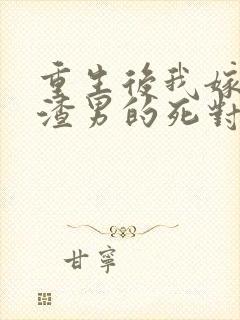 重生後我嫁
渣男的死對
甘寧